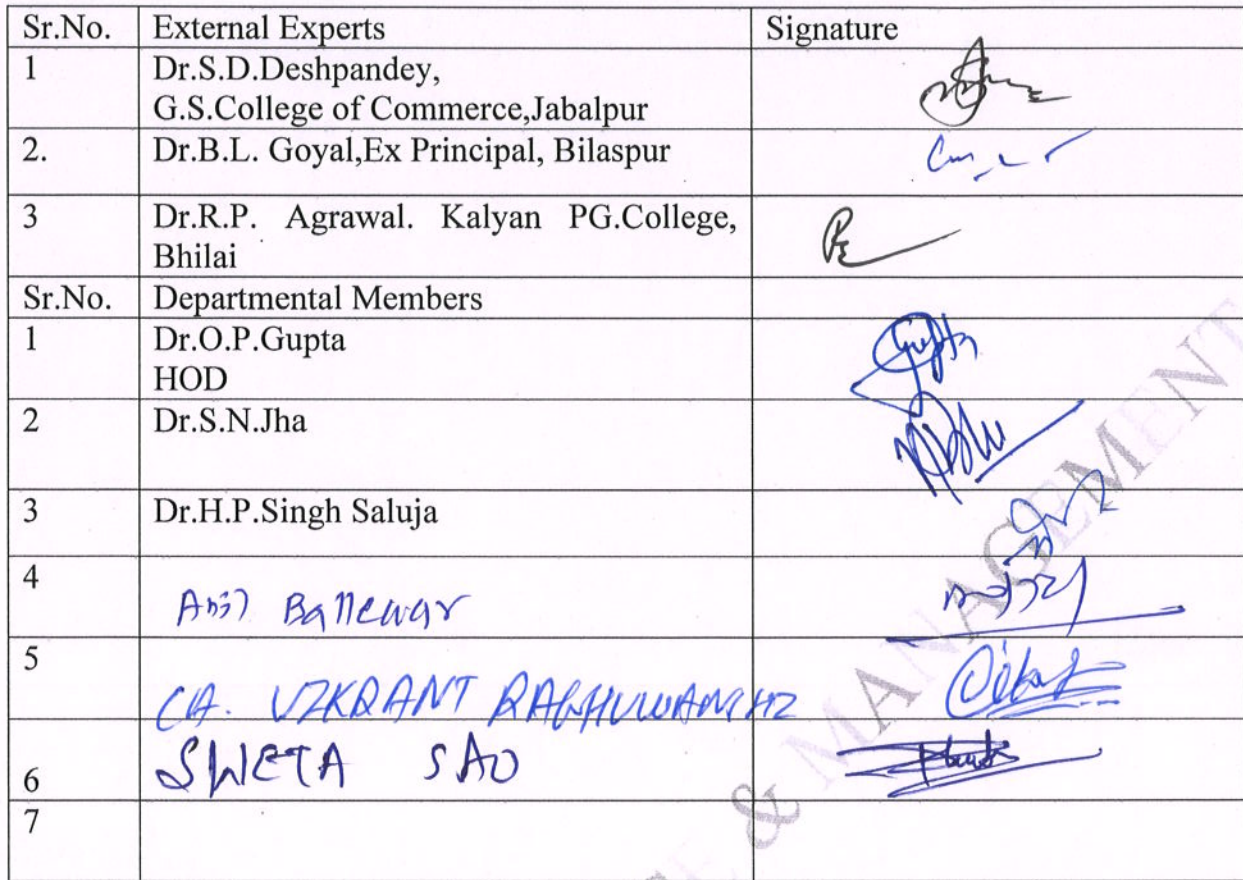 Sr.No. External Experts Signature
1 Dr.S.D.Deshpandey,
G.S.College of Commerce,Jabalpur
2. Dr.B.L. Goyal,Ex Principal, Bilaspur
3 Dr.R.P. Agrawal. Kalyan PG.College,
Bhilai
Sr.No. Departmental Members
1 Dr.O.P.Gupta
HOD
Gupta
2 Dr.S.N.Jha
3 Dr.H.P.Singh Saluja
4 Anil Ballewar
5
CA. VIKRANT RAGHUWANSHI
6 SWETA SAO
7
& MANAGEMENT